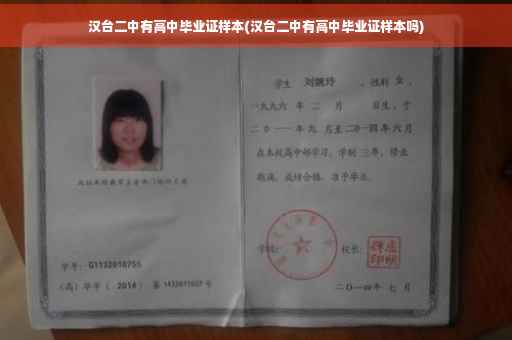 汉台二中有高中毕业证样本(汉台二中有高中毕业证样本吗)
学生 刘婉玲 ，性别 女 ，
一九九六 年 二 月 日生，于
二〇一一 年 九 月至 二〇一四 年 六 月
在本校高中部学习，学制 三 年，修业
期满，成绩合格，准予毕业。
学号： G1132010755
(高) 毕字 ( 2014 ) 第 1432011027 号
学校：
校长：
二〇一四年 七 月